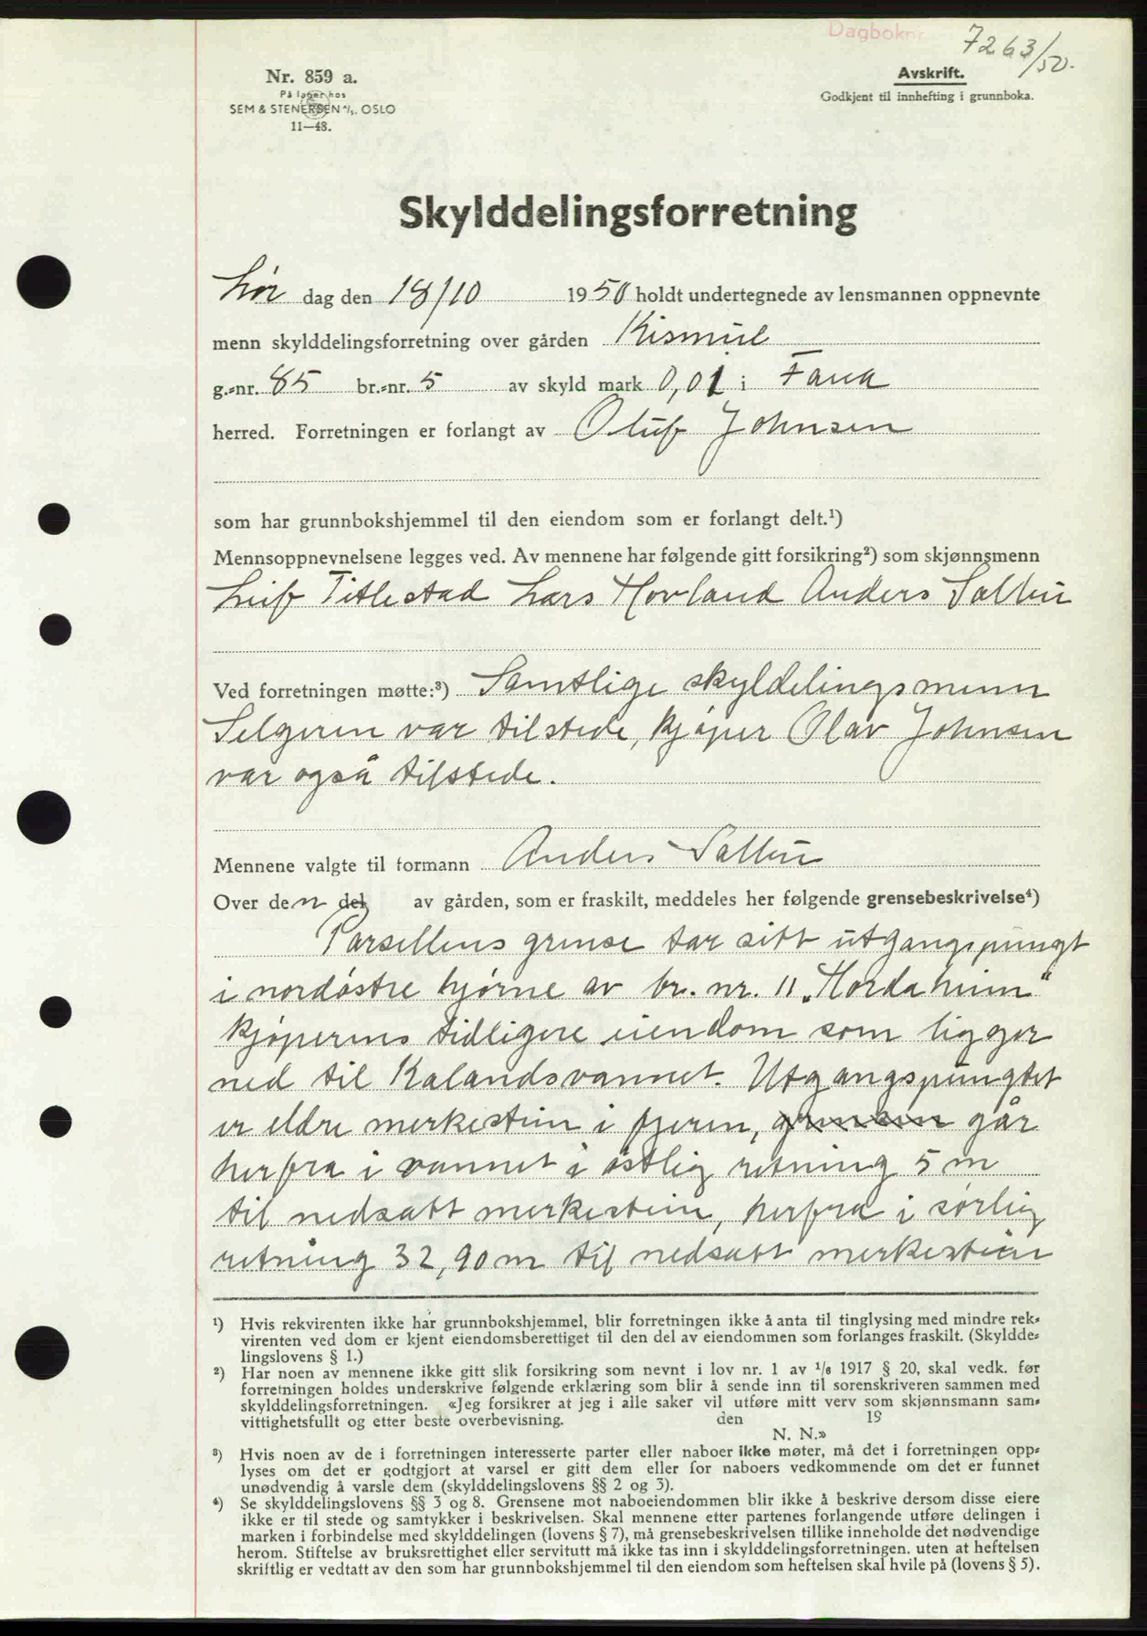 Dagboknr. 7263/50.
Nr. 859 a.
På lager hos
SEM & STENERSEN A/S. OSLO
11—48.
Avskrift.
Godkjent til innhefting i grunnboka.
Skylddelingsforretning
Lør dag den 18/10 1950 holdt undertegnede av lensmannen oppnevnte
menn skylddelingsforretning over gården Kismul
g.-nr. 85 br.-nr. 5 av skyld mark 0,01 i Fana
herred. Forretningen er forlangt av Oluf Johnsen
som har grunnbokshjemmel til den eiendom som er forlangt delt.¹)
Mennsoppnevnelsene legges ved. Av mennene har følgende gitt forsikring²) som skjønnsmenn
Leif Titlestad Lars Hovland Anders
Ved forretningen møtte:³) Samtlige skyldelingsmenn
Selgeren var tilstede, kjøper Olav Johnsen
var også tilstede.
Mennene valgte til formann Anders
Over den del av gården, som er fraskilt, meddeles her følgende grensebeskrivelse⁴)
Parsellens grense tar sitt utgangspungt
i nordøstre hjørne av br. nr. 11 „Hordaheim“
kjøperens tidligere eiendom som ligger
ned til Kalandsvannet. Utgangspungtet
er eldre merkestein i fjæren, grensen går
herfra i vannet i østlig retning 5 m
til nedsatt merkestein, herfra i sørlig
retning 32,90 m til nedsatt merkestein
¹) Hvis rekvirenten ikke har grunnbokshjemmel, blir forretningen ikke å anta til tinglysing med mindre rek-
virenten ved dom er kjent eiendomsberettiget til den del av eiendommen som forlanges fraskilt. (Skyldde-
lingslovens § 1.)
²) Har noen av mennene ikke gitt slik forsikring som nevnt i lov nr. 1 av 1/6 1917 § 20, skal vedk. før
forretningen holdes underskrive følgende erklæring som blir å sende inn til sorenskriveren sammen med
skylddelingsforretningen. «Jeg forsikrer at jeg i alle saker vil utføre mitt verv som skjønnsmann sam-
vittighetsfullt og etter beste overbevisning. den 19
N. N.»
³) Hvis noen av de i forretningen interesserte parter eller naboer ikke møter, må det i forretningen opp-
lyses om det er godtgjort at varsel er gitt dem eller for naboers vedkommende om det er funnet
unødvendig å varsle dem (skylddelingslovens §§ 2 og 3).
⁴) Se skylddelingslovens §§ 3 og 8. Grensene mot naboeiendommen blir ikke å beskrive dersom disse eiere
ikke er til stede og samtykker i beskrivelsen. Skal mennene etter partenes forlangende utføre delingen i
marken i forbindelse med skylddelingen (lovens § 7), må grensebeskrivelsen tillike inneholde det nødvendige
herom. Stiftelse av bruksrettighet eller servitutt må ikke tas inn i skylddelingsforretningen. uten at heftelsen
skriftlig er vedtatt av den som har grunnbokshjemmel til den eiendom som heftelsen skal hvile på (lovens § 5).